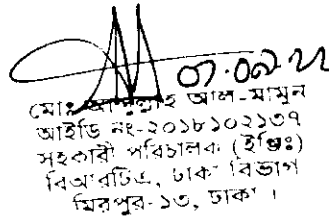 ০৭.০৯.২২
মোঃ আব্দুল্লাহ আল-মামুন
আইডি নং-২০১৮১০২১৩৭
সহকারী পরিচালক (ইঞ্জিঃ)
বিআরটিএ, ঢাকা বিভাগ
মিরপুর-১৩, ঢাকা।